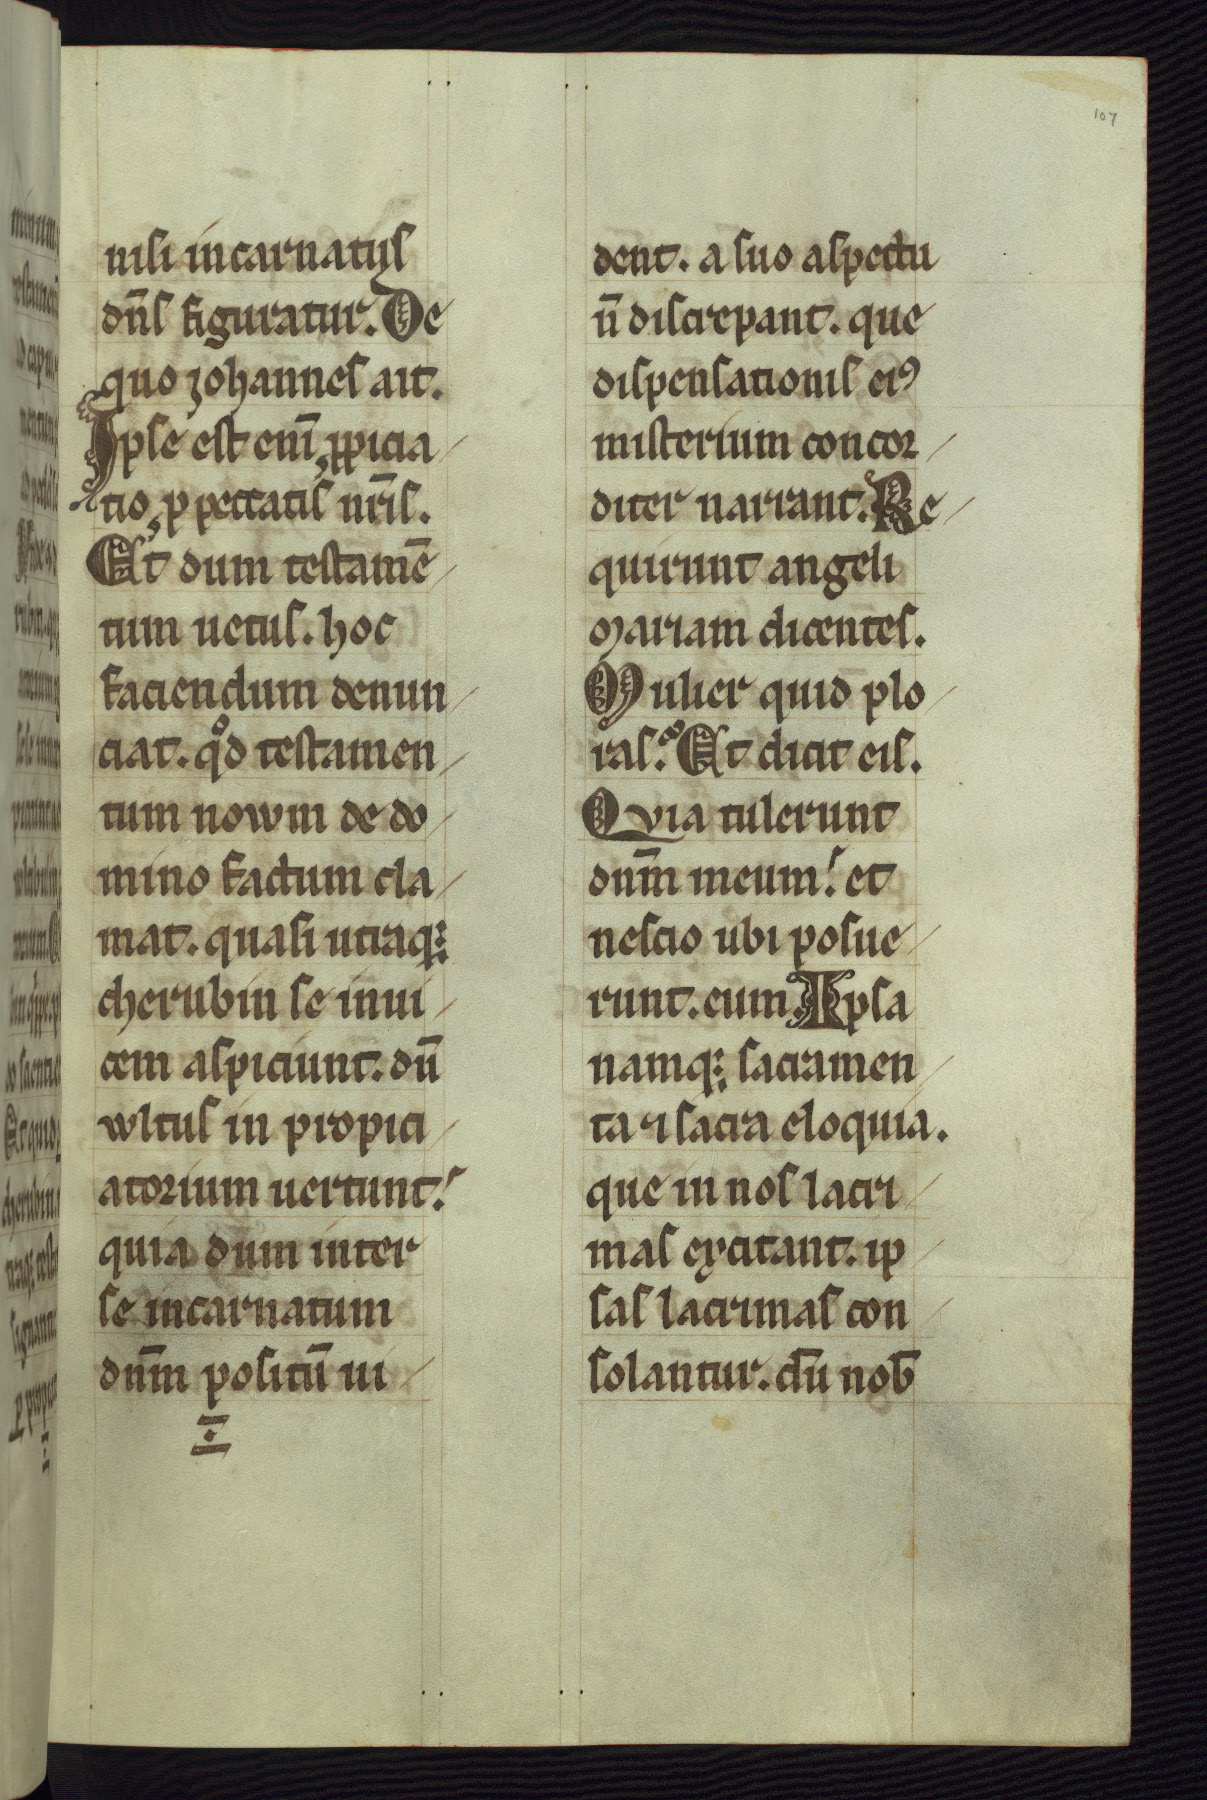 107
nisi incarnatus
dn̄s figuratur. De
quo iohannes ait.
Ipse est eni̅ ꝓpicia
tio, p peccatis nr̅is.
Et dum testame̅
tum uetus. hoc
faciendum denun
ciat. qͦd testamen
tum nowm de do
mino factum cla
mat. quasi utraqꝫ
cherubin se inui
cem aspiciunt. du̅
wltus in propici
atorium uertunt.
quia dum inter
se incarnatum
dnm̅ positu̅ ui
dent. a suo aspectu
n̅ discrepant. que
dispensationis eiꝰ
misterium concor
diter narrant. Re
quirunt angeli
mariam dicentes.
Mulier quid plo
ras. Et dicit eis.
Qvia tulerunt
dnm̅ meum. et
nescio ubi posue
runt. eum. Ipsa
namqꝫ sacramen
ta ⁊ sacra eloquia.
que in nos lacri
mas excitant. ip
sas lacrimas con
solantur. du̅ nob̅